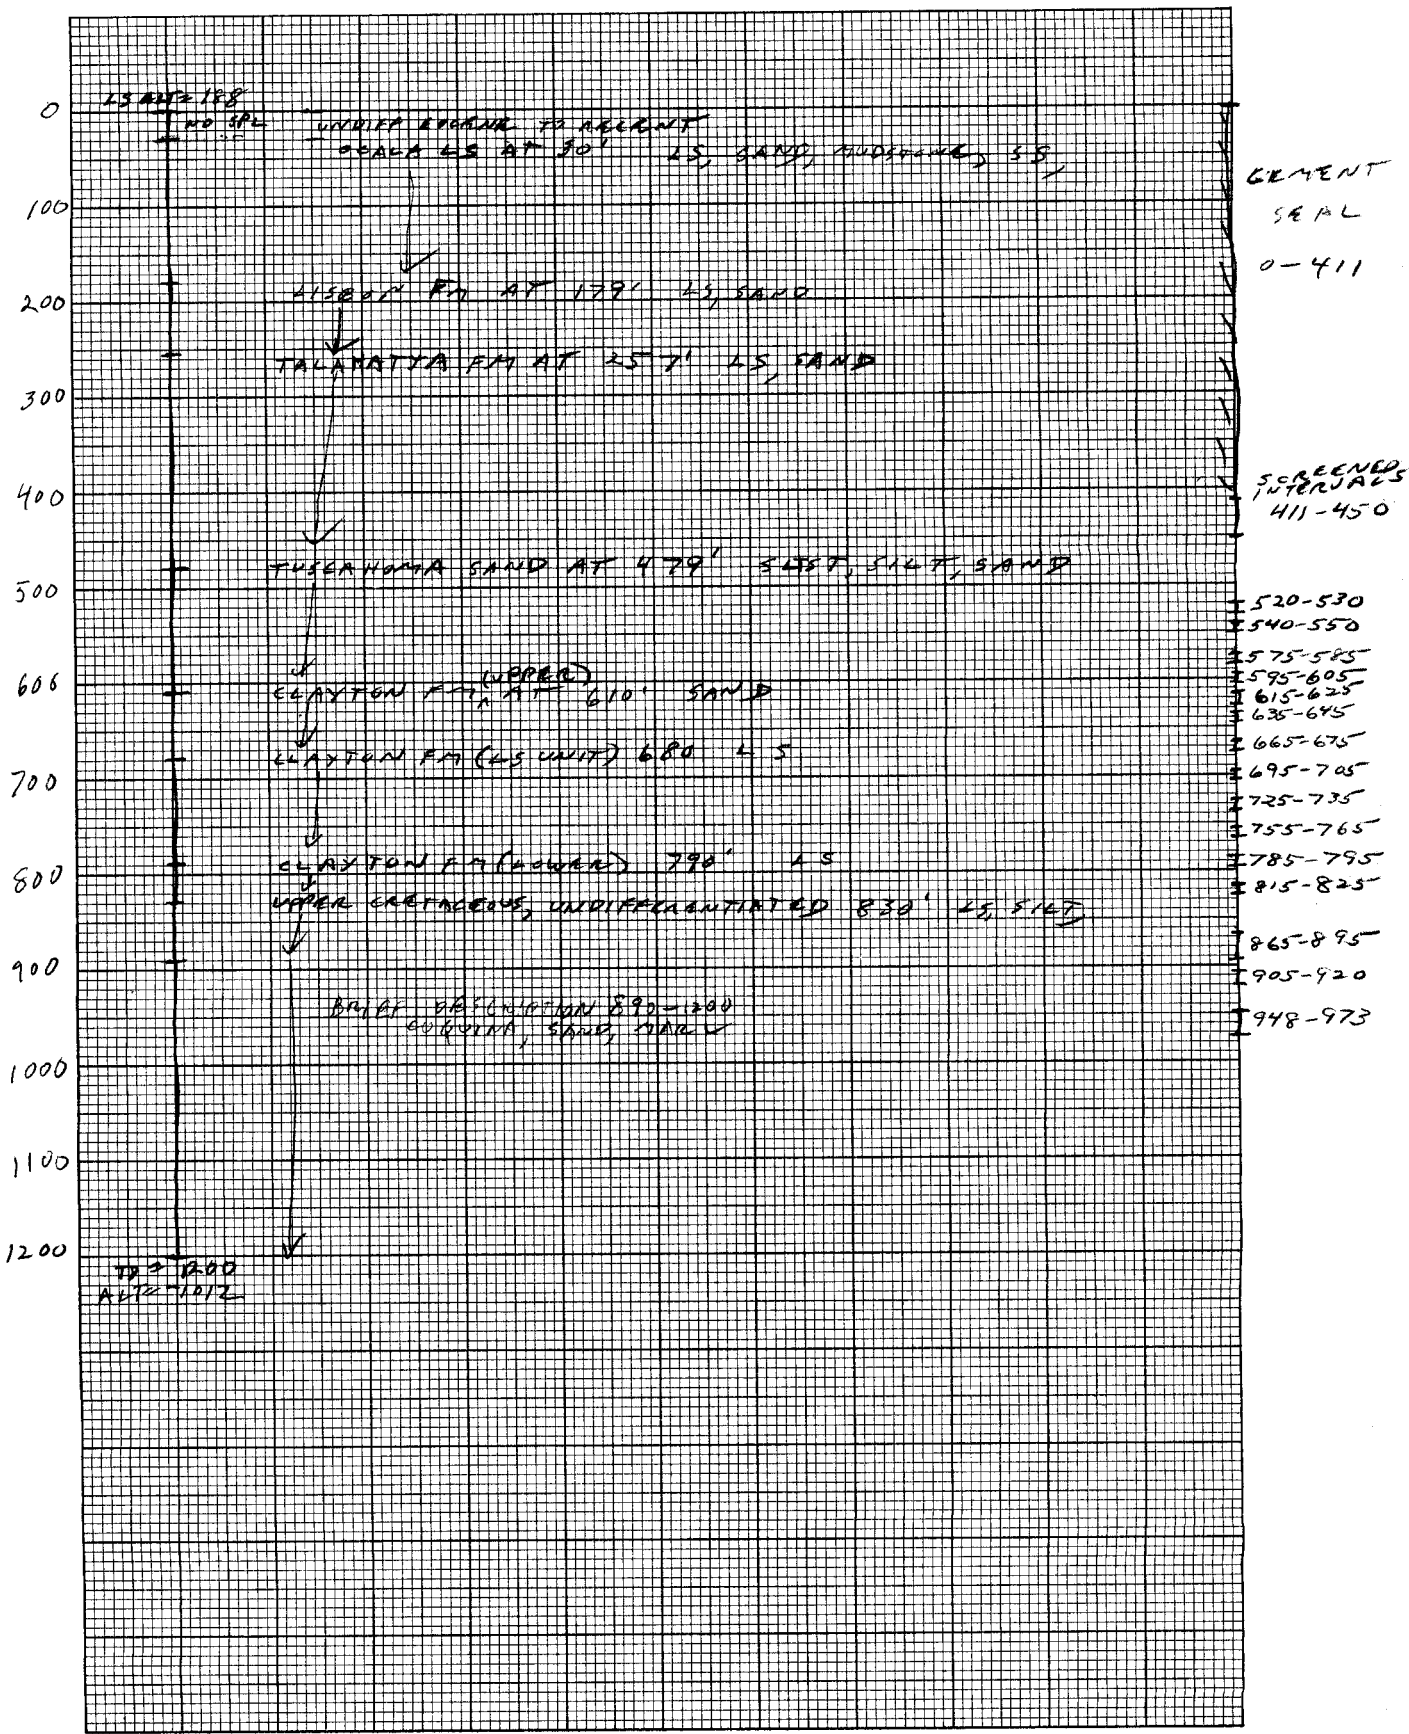 LS ALT= 188
0
NO SPL
UNDIFF EOCENE TO RECENT
OCALA LS AT 30' LS, SAND, MUDSTONE, SS,
100
200
LISBON FM AT 179' LS, SAND
TALAHATTA FM AT 257' LS, SAND
300
400
TUSCAHOMA SAND AT 479' SLST, SILT, SAND
500
600
(UPPER)
CLAYTON FM ^ AT 610' SAND
CLAYTON FM (LS UNIT) 680 LS
700
CLAYTON FM (LOWER) 790' LS
800
UPPER CRETACEOUS, UNDIFFERENTIATED 830' LS, SILT,
900
BRIEF DESCRIPTION 890-1200
COQUINA, SAND, MARL
1000
1100
1200
TD = 1200
ALT= -1012
CEMENT
SEAL
0-411
SCREENED
INTERVALS
411-450
520-530
540-550
575-585
595-605
615-625
635-645
665-675
695-705
725-735
755-765
785-795
815-825
865-895
905-920
948-973